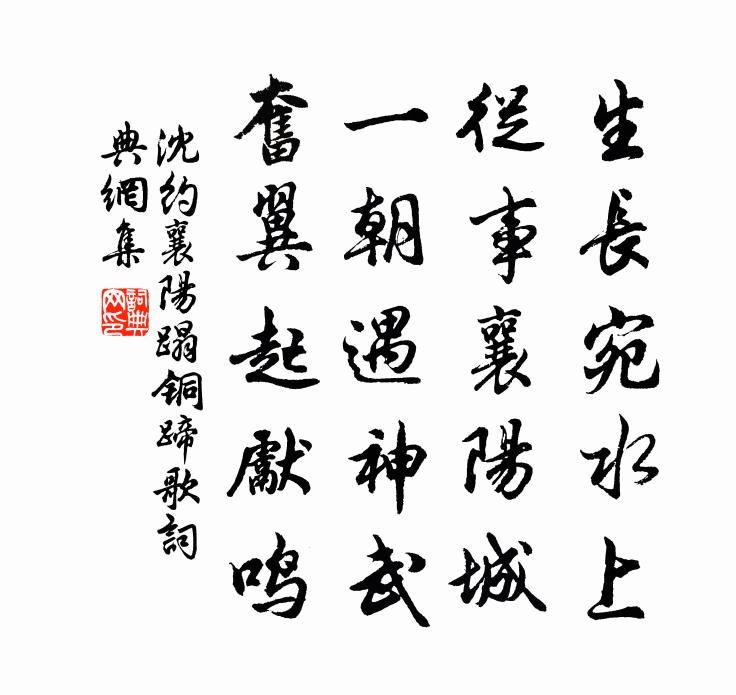 生長宛水上
從事襄陽城
一朝遇神武
奮翼起獻鳴
沈約襄陽蹋銅蹄歌詞
典網集
詞典网印